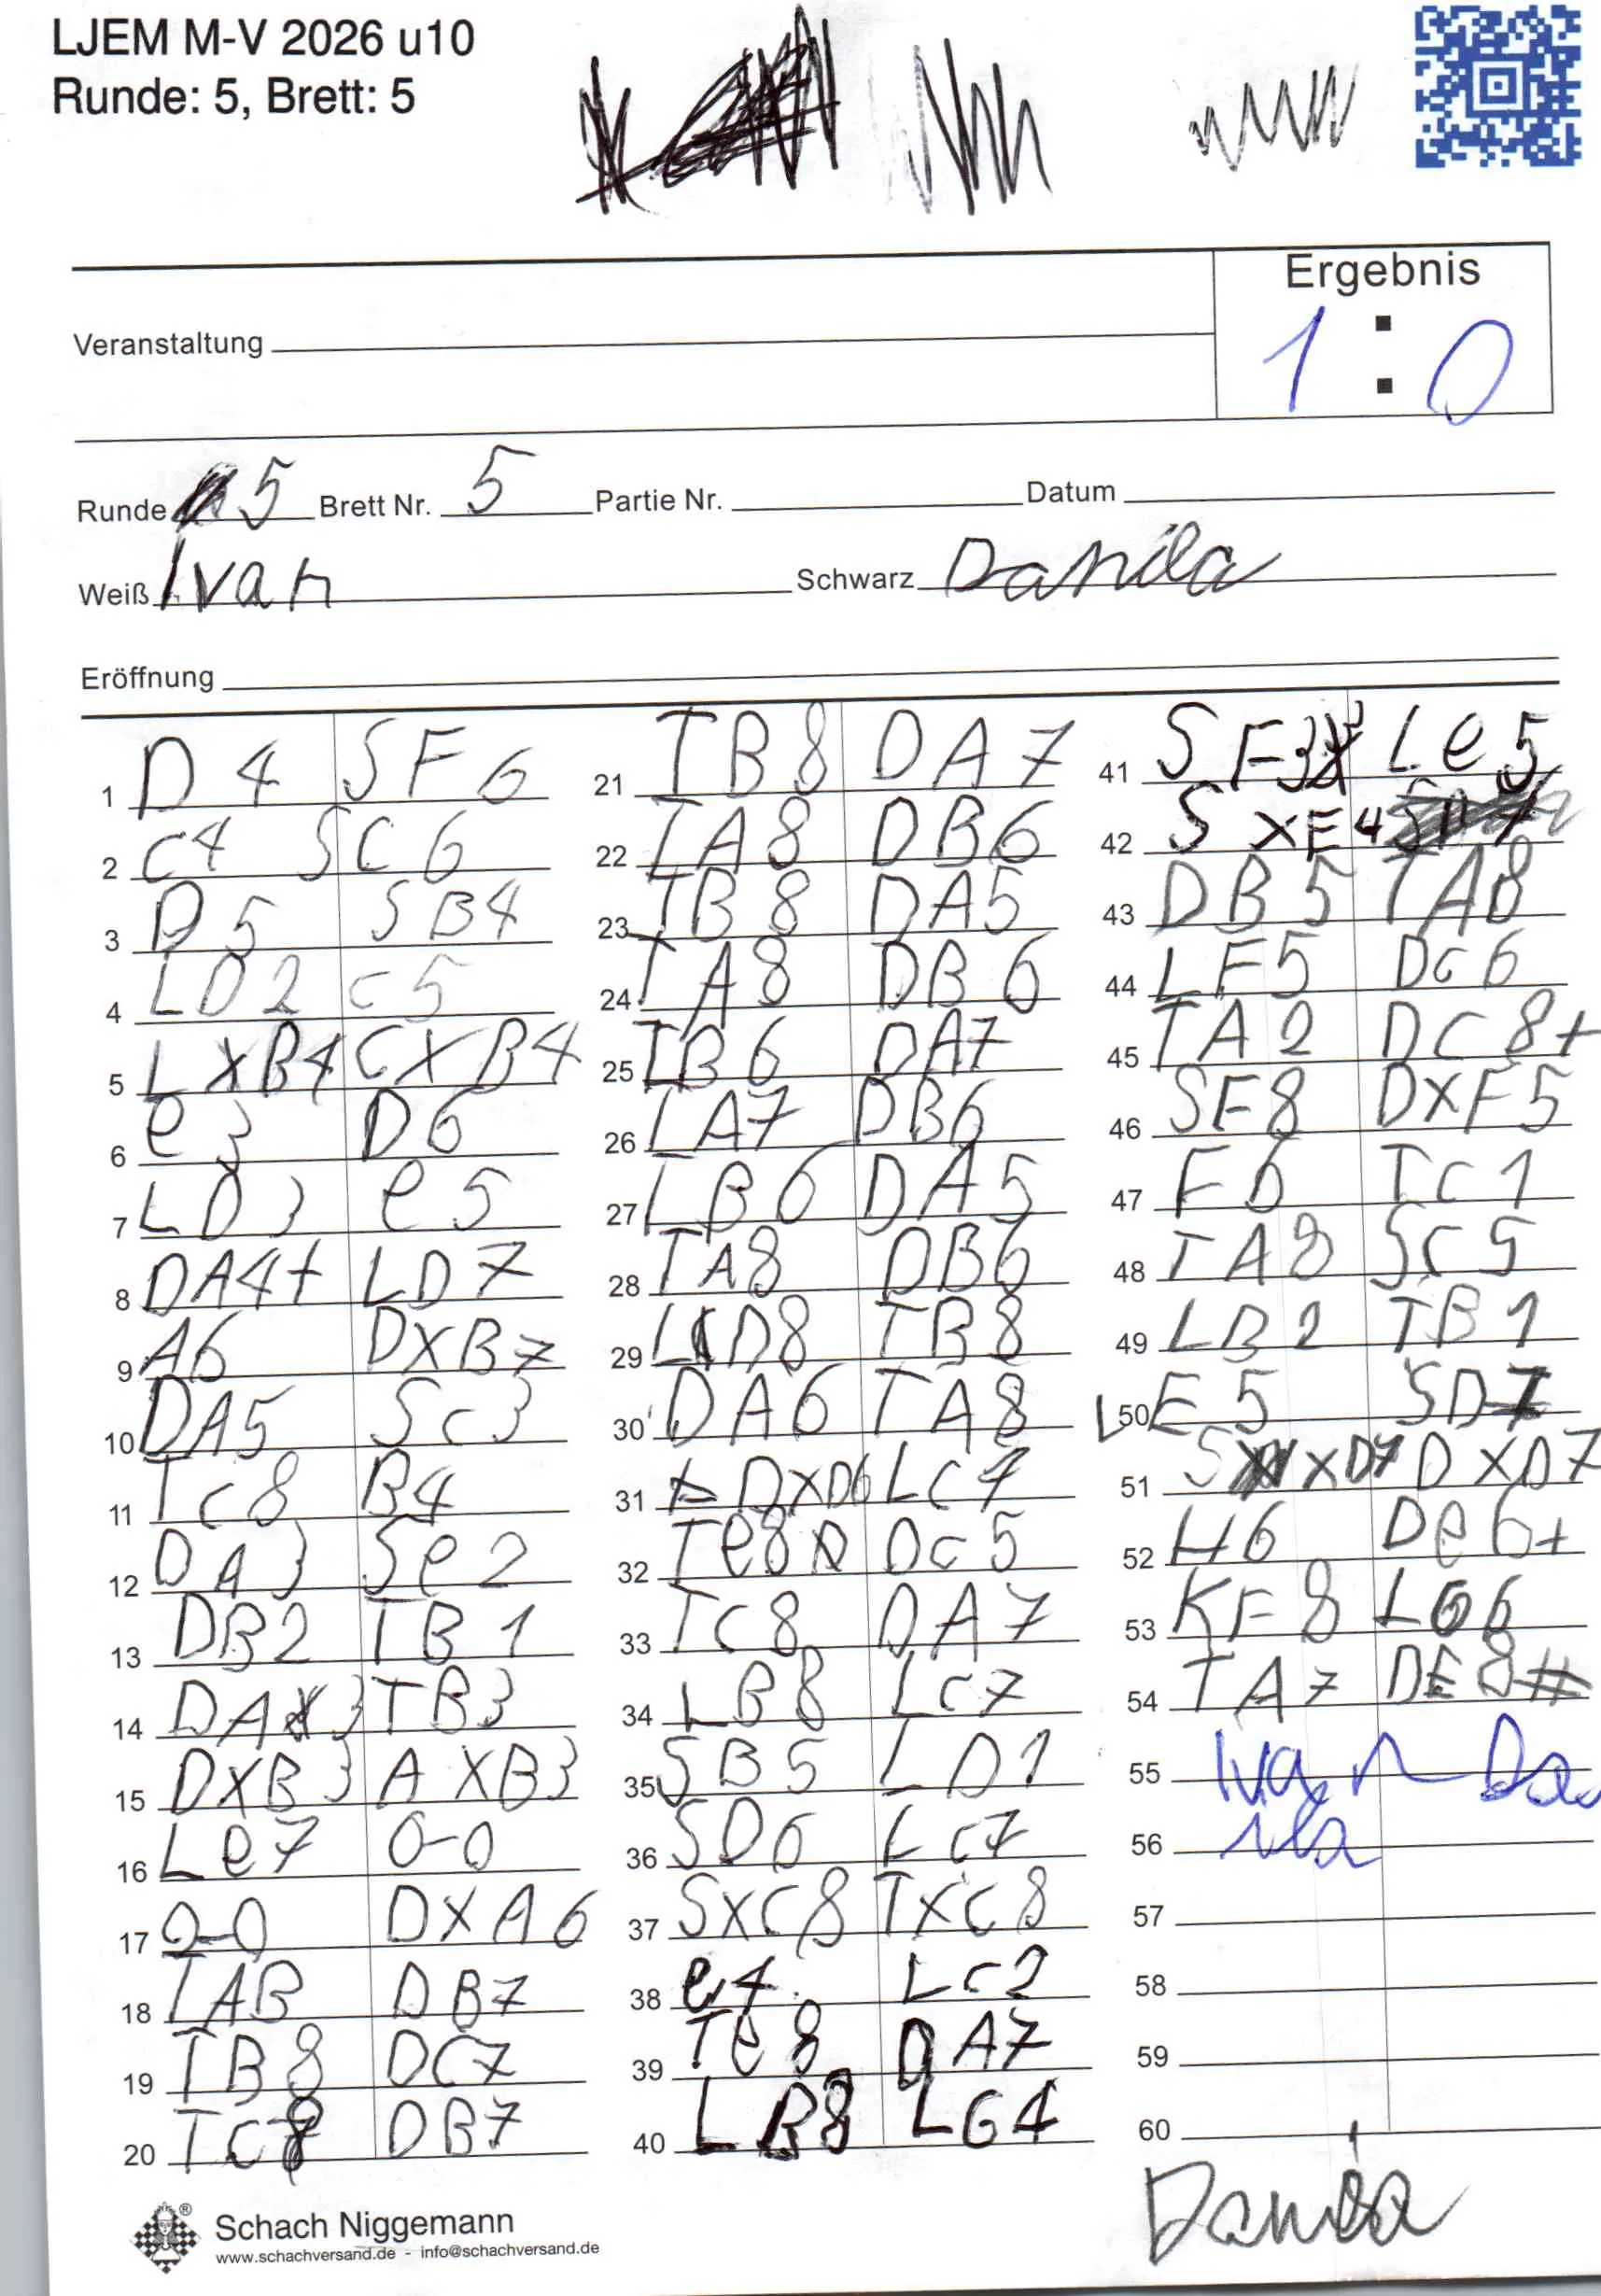 LJEM M-V 2026 u10
Runde: 5, Brett: 5
Ergebnis
1 : 0
Veranstaltung
Runde 5 Brett Nr. 5 Partie Nr. Datum
Weiß Ivan Schwarz Danila
Eröffnung
1 D4 SF6
2 c4 SC6
3 D5 SB4
4 LD2 c5
5 LXB4 CXB4
6 e3 D6
7 LD3 e5
8 DA4+ LD7
9 A6 DXB7
10 DA5 Sc3
11 Tc8 B4
12 DA3 Se2
13 DB2 TB1
14 DA3 TB3
15 DXB3 AXB3
16 Le7 0-0
17 0-0 DXA6
18 TAB DB7
19 TB8 DC7
20 Tc8 DB7
21 TB8 DA7
22 LA8 DB6
23 TB8 DA5
24 TA8 DB6
25 TB6 DA7
26 LA7 DB6
27 LB6 DA5
28 TA8 DB6
29 LD8 TB8
30 DA6 TA8
31 DXD6 Lc7
32 Te8 Dc5
33 Tc8 DA7
34 LB8 Lc7
35 SB5 LD1
36 SD6 Lc7
37 SXC8 TXC8
38 e4 Lc2
39 Te8 DA7
40 LB8 LG4
41 SF3 Le5
42 SXE4
43 DB5 TA8
44 LF5 Dc6
45 TA2 DC8+
46 SF8 DXF5
47 F6 Tc1
48 TA8 Sc5
49 LB2 TB1
50 LE5 SD7
51 SXD7 DXD7
52 H6 De6+
53 KF8 LG6
54 TA7 DE8#
55 Ivan Da
56 nila
57
58
59
60
Danila
Schach Niggemann
www.schachversand.de - info@schachversand.de